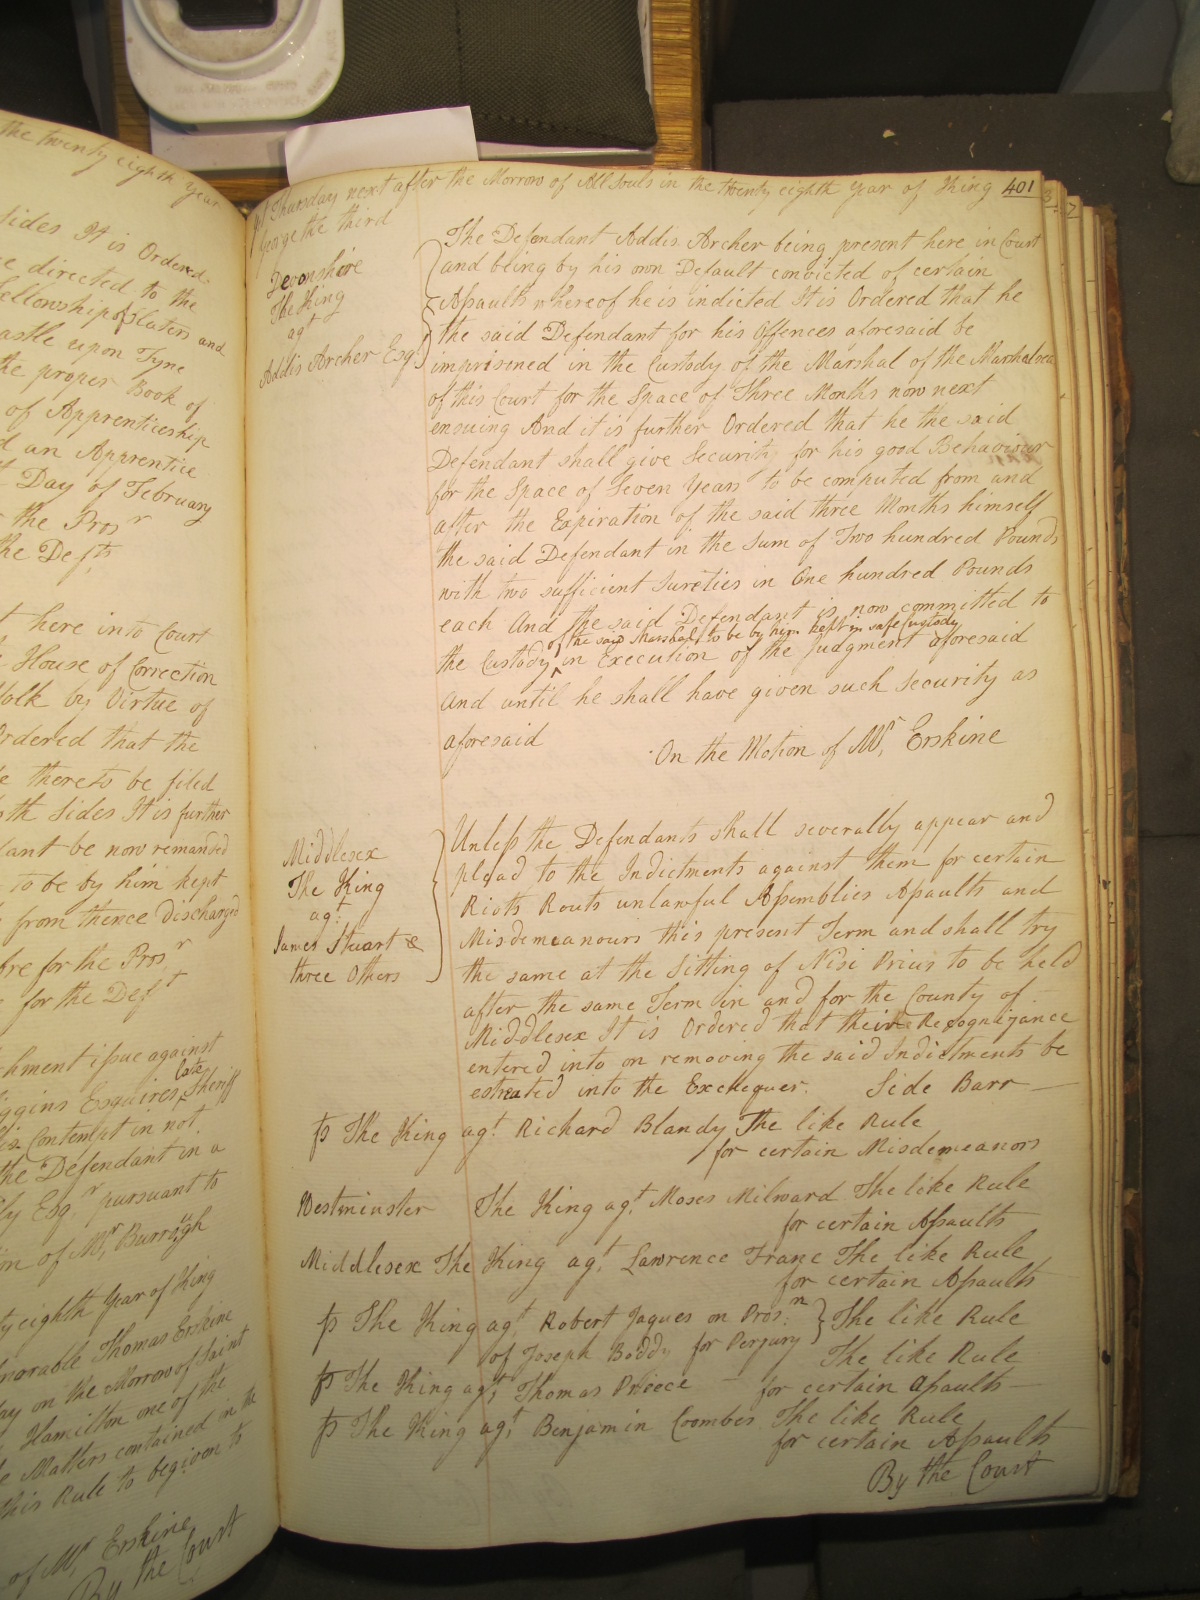 the twenty eighth year
sides It is Ordered
directed to the
fellowship of Slaters and
castle upon Tyne
the proper Book of
of Apprenticeship
an Apprentice
Day of February
the Pros.r
the Def.ts
here into Court
House of Correction
by Virtue of
Ordered that the
thereto be filed
both Sides It is further
be now remanded
to be by him kept
from thence Discharged
for the Pros.r
for the Def.t
issue against
Esquires late Sheriff
Contempt in not
the Defendant in a
Esq.r pursuant to
of Mr. Burrough
eighth Year of King
Thomas Erskine
on the Morrow of Saint
Hamilton one of the
Matters contained in the
this Rule to be given to
of Mr. Erskine
By the Court
401
Thursday next after the Morrow of All Souls in the twenty eighth year of King
George the third
Devonshire
The King
agt
Addis Archer Esq.r
The Defendant Addis Archer being present here in Court
and being by his own Default convicted of certain
Assaults whereof he is indicted It is Ordered that he
the said Defendant for his Offences aforesaid be
imprisoned in the Custody of the Marshal of the Marshalsea
of this Court for the Space of Three Months now next
ensuing And it is further Ordered that he the said
Defendant shall give Security for his good Behaviour
for the Space of Seven Years to be computed from and
after the Expiration of the said three Months himself
the said Defendant in the Sum of Two hundred Pounds
with two sufficient Sureties in One hundred Pounds
each And the said Defendant is now committed to
of the said Marshal to be by him kept in safe Custody
the Custody ^ in Execution of the Judgment aforesaid
And until he shall have given such Security as
aforesaid
On the Motion of Mr. Erskine
Middlesex
The King
agt
James Stuart &
three Others
Unless the Defendants shall severally appear and
plead to the Indictments against them for certain
Riots Routs unlawful Assemblies Assaults and
Misdemeanours this present Term and shall try
the same at the Sitting of Nisi Prius to be held
after the same Term in and for the County of
Middlesex It is Ordered that their Recognizance
entered into on removing the said Indictments be
estreated into the Exchequer. Side Barr
The King agt. Richard Blandy The like Rule
for certain Misdemeanors
Westminster The King agt. Moses Milward The like Rule
for certain Assaults
Middlesex The King agt. Lawrence Frane The like Rule
for certain Assaults
The King agt. Robert Jaques on Pros.n } The like Rule
of Joseph Boddy for Perjury
The like Rule
The King agt. Thomas Preece for certain Assaults
The King agt. Benjamin Coombes The like Rule
for certain Assaults
By the Court